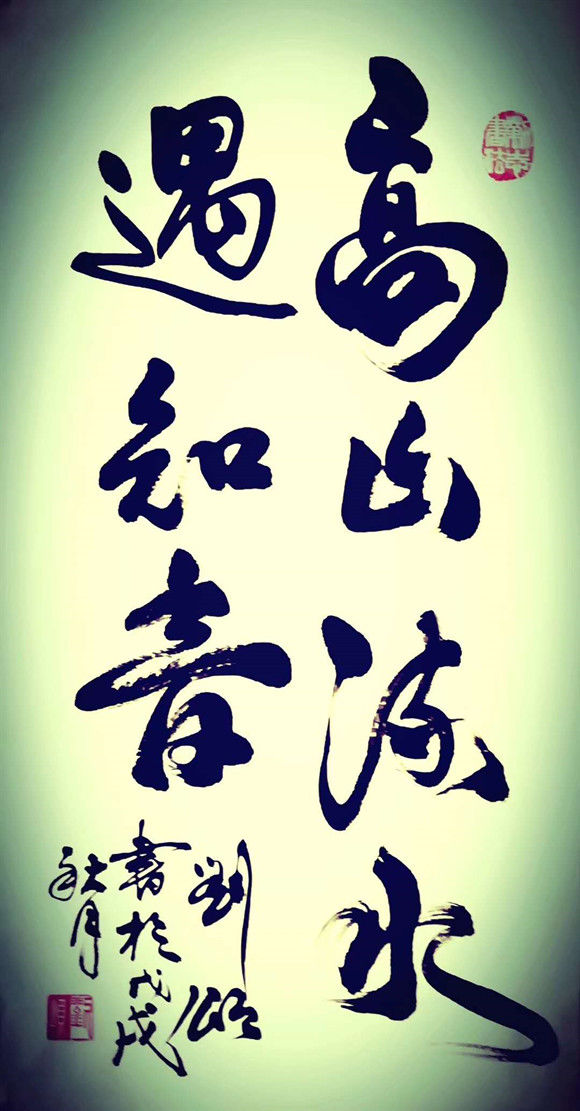 高山流水
遇知音
劉
書於戊戌
秋月